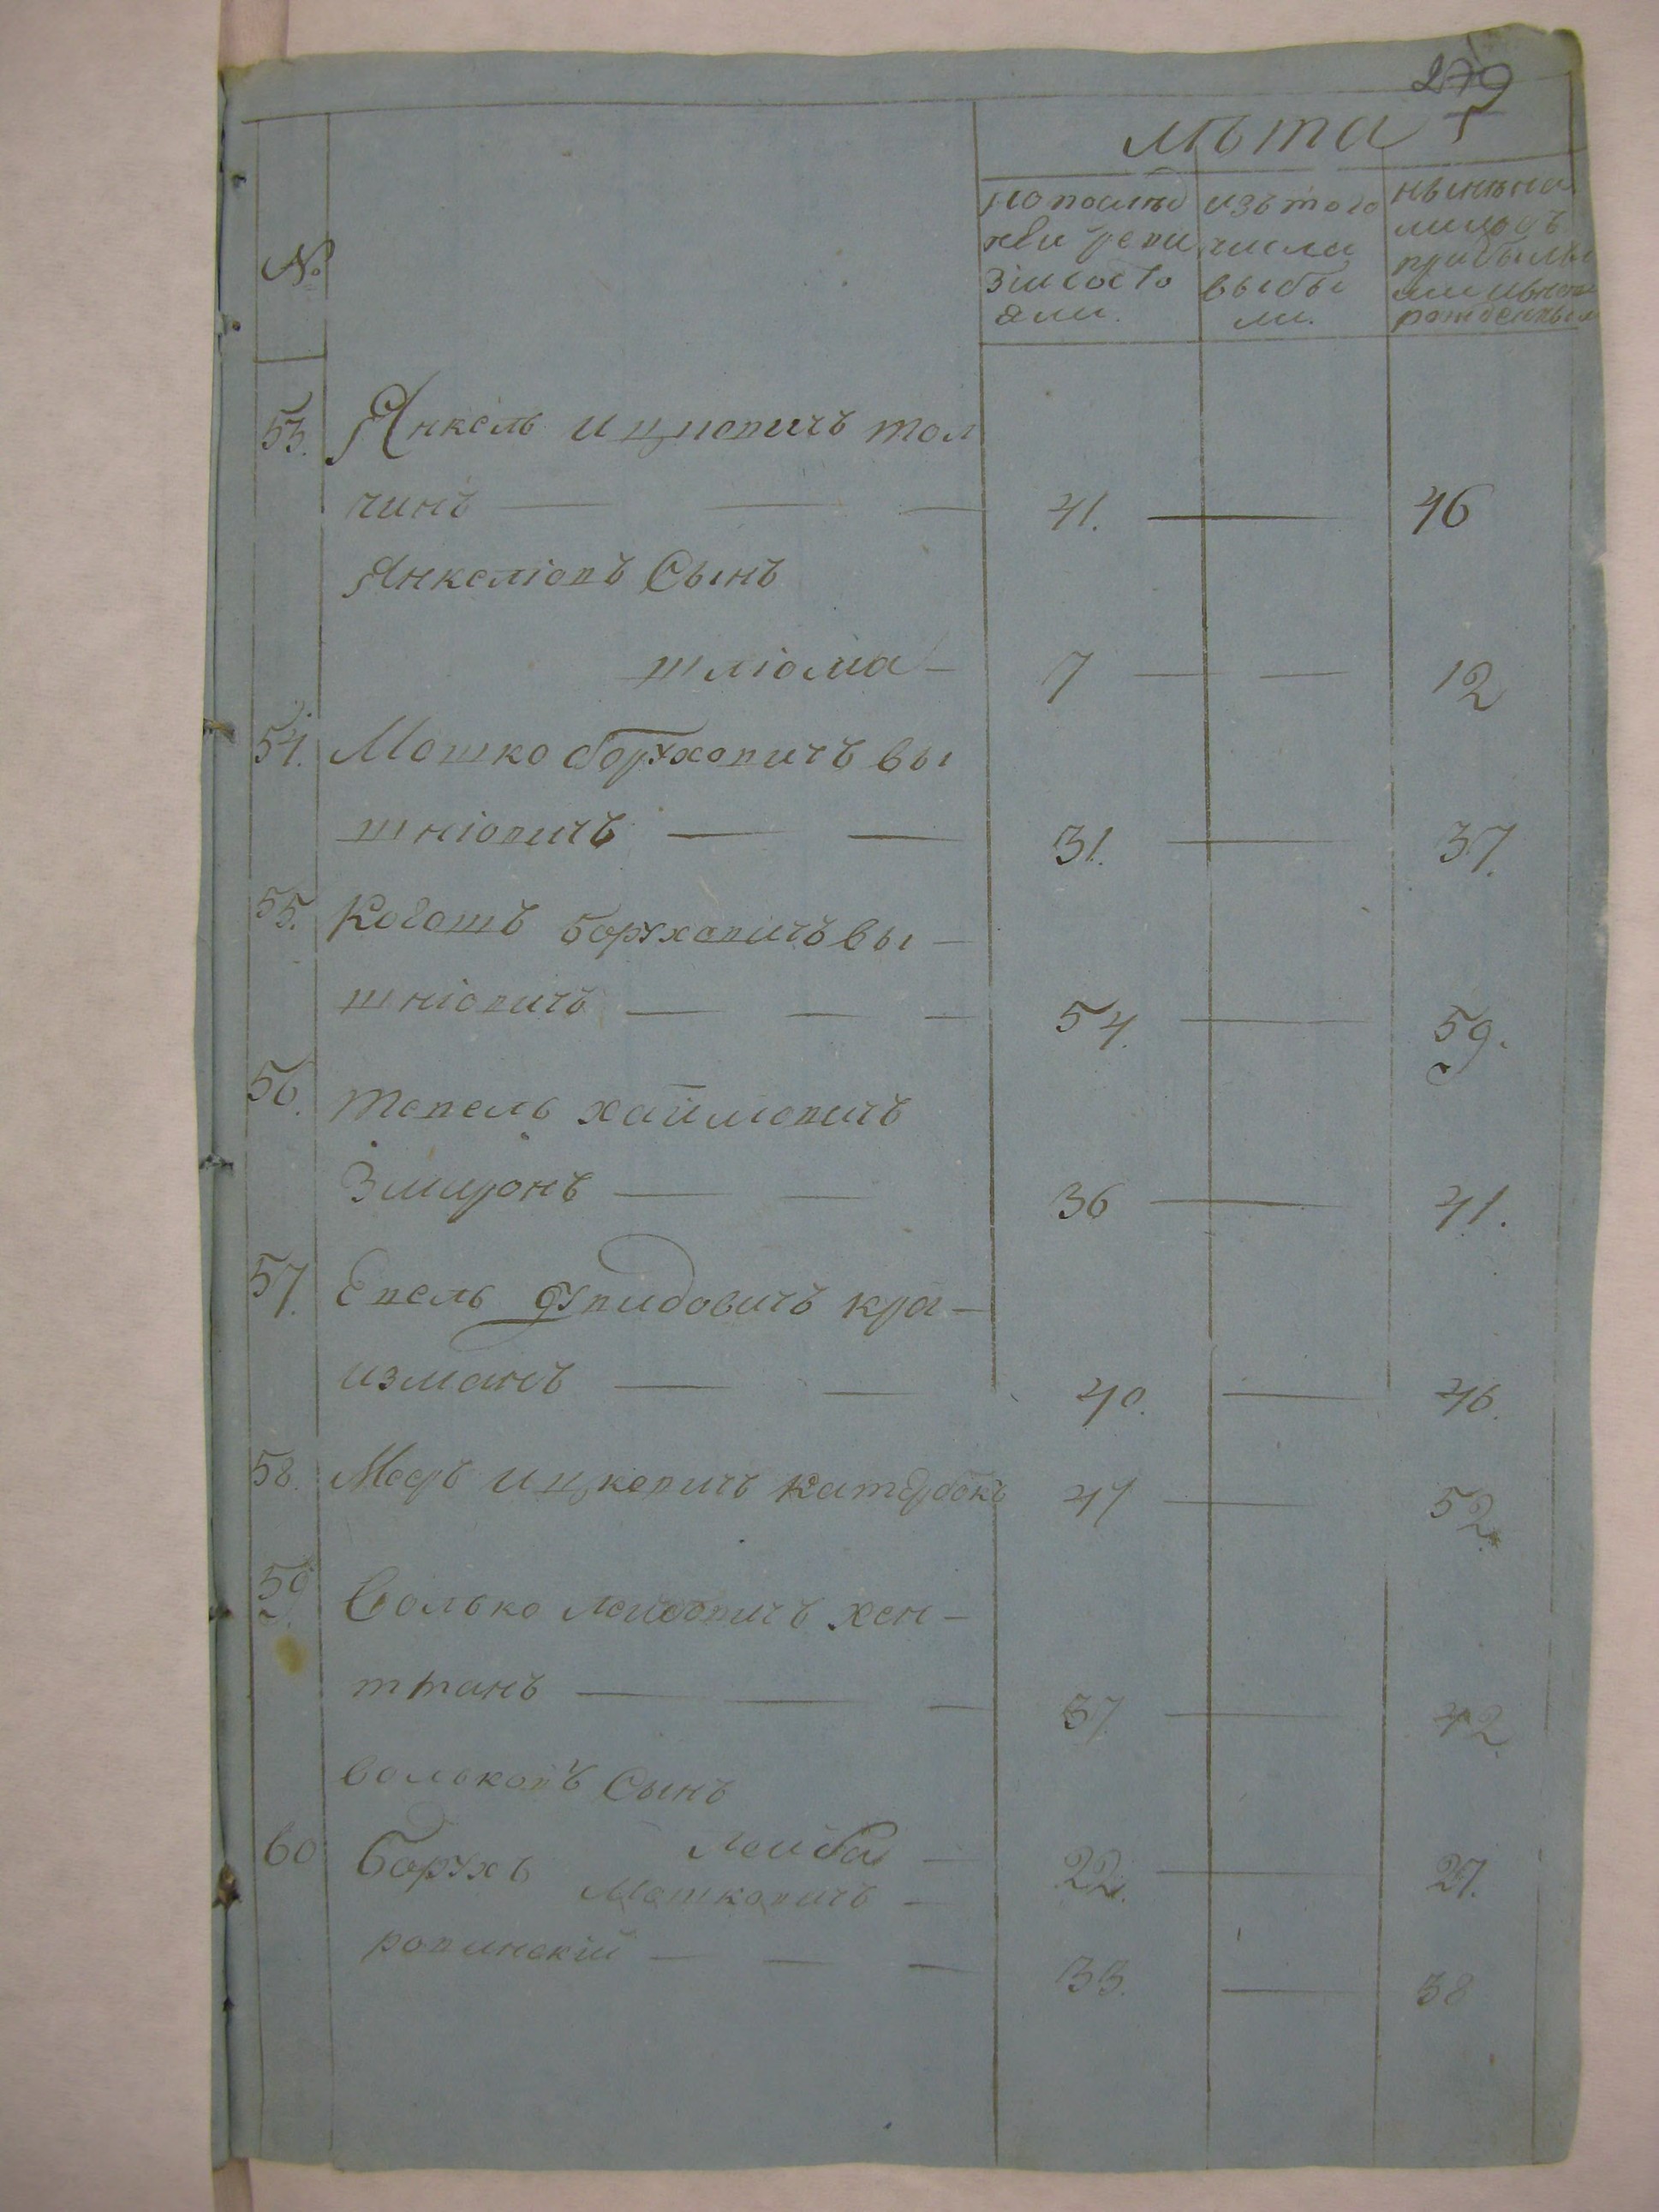 279
лѣта
№
по послѣд
ней реви
зіи состо
яли.
изъ того
числа
выбы
ли.
нынѣ на
лицо съ
прибылы
ми и вново
рожденными
53. Янкель Ицковичъ тол
чинъ — — — 41. — 46
Янкеліовъ Сынъ
шліома — 7 — — 12
54. Мошко боруховичъ вы
шніовичъ — — 31. — 37.
55. Когошъ Боруховичъ вы —
шніовичъ — — — 54. — 59.
56. Тевель хаймовичъ
Змиронъ — — 36 — 41.
57. Евель Дувидовичъ кра —
изманъ — — 40. — 46.
58. Мееръ Ицковичъ 47 — 52.
59. Волько Лейбовичъ хен —
тманъ — — — 37. — 42.
Вольковъ Сынъ
Лейба — 22. — 27.
60 Борухъ Мошковичъ —
ровинскій — — — 33. — 38